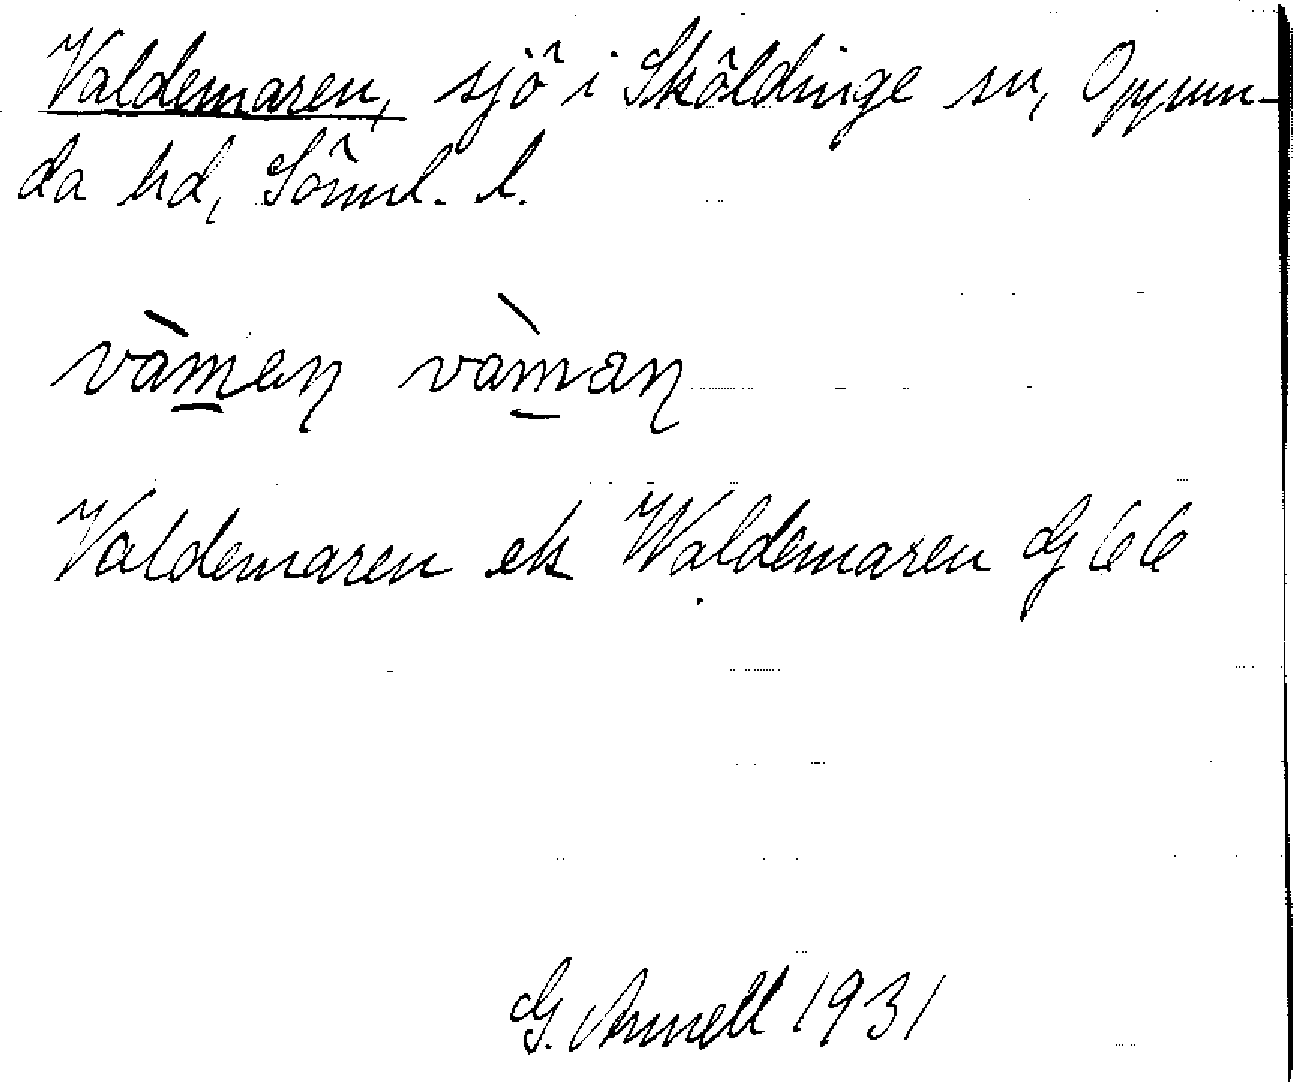 Valdemaren, sjö i Sköldinge sn, Oppun-
da hd, Söml. l.
vàman vàman
Valdemaren ek Waldemaren G 66
G. Arnell 1931